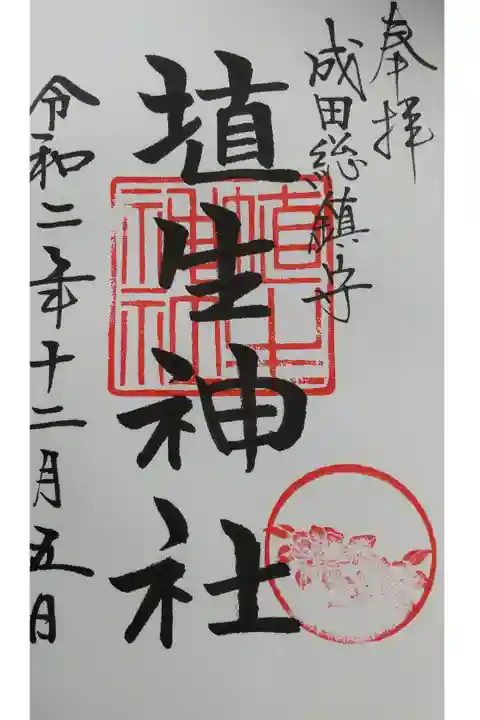 奉拝
成田総鎮守
埴生神社
埴生神社
令和二年十二月五日